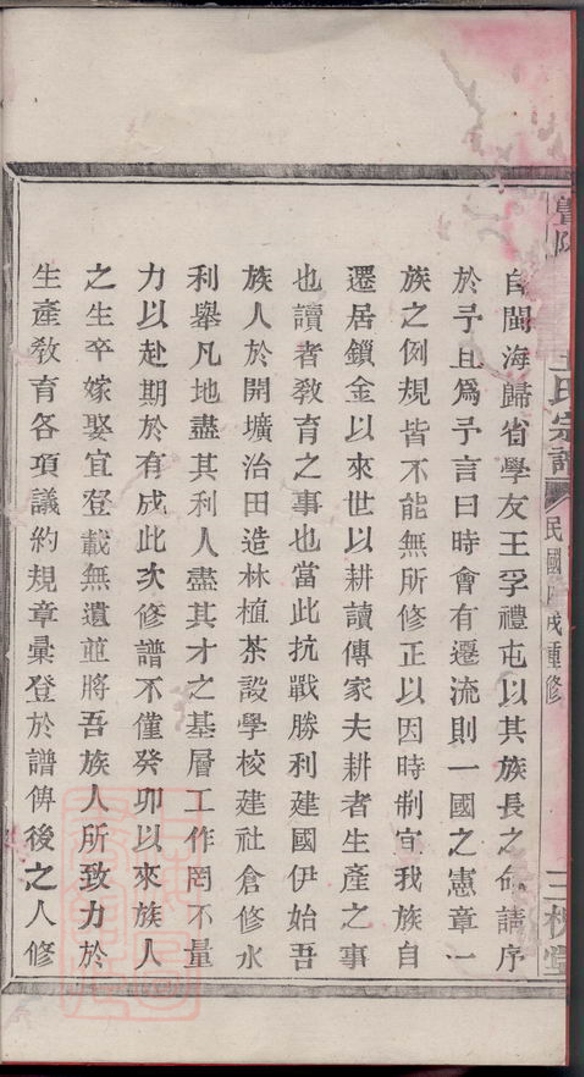 自閩海歸省學友王孚禮屯以其族長之命請序
於予且爲予言曰時會有遷流則一國之憲章一
族之例規皆不能無所修正以因時制宜我族自
遷居鎖金以來世以耕讀傳家夫耕者生產之事
也讀者教育之事也當此抗戰勝利建國伊始吾
族人於開壙治田造林植茶設學校建社倉修水
利舉凡地盡其利人盡其才之基層工作罔不量
力以赴期於有成此次修譜不僅癸卯以來族人
之生卒嫁娶宜登載無遺並將吾族人所致力於
生產教育各項議約規章彙登於譜俾後之人修
暨陽 王氏宗譜
民國 戌重修
三槐堂